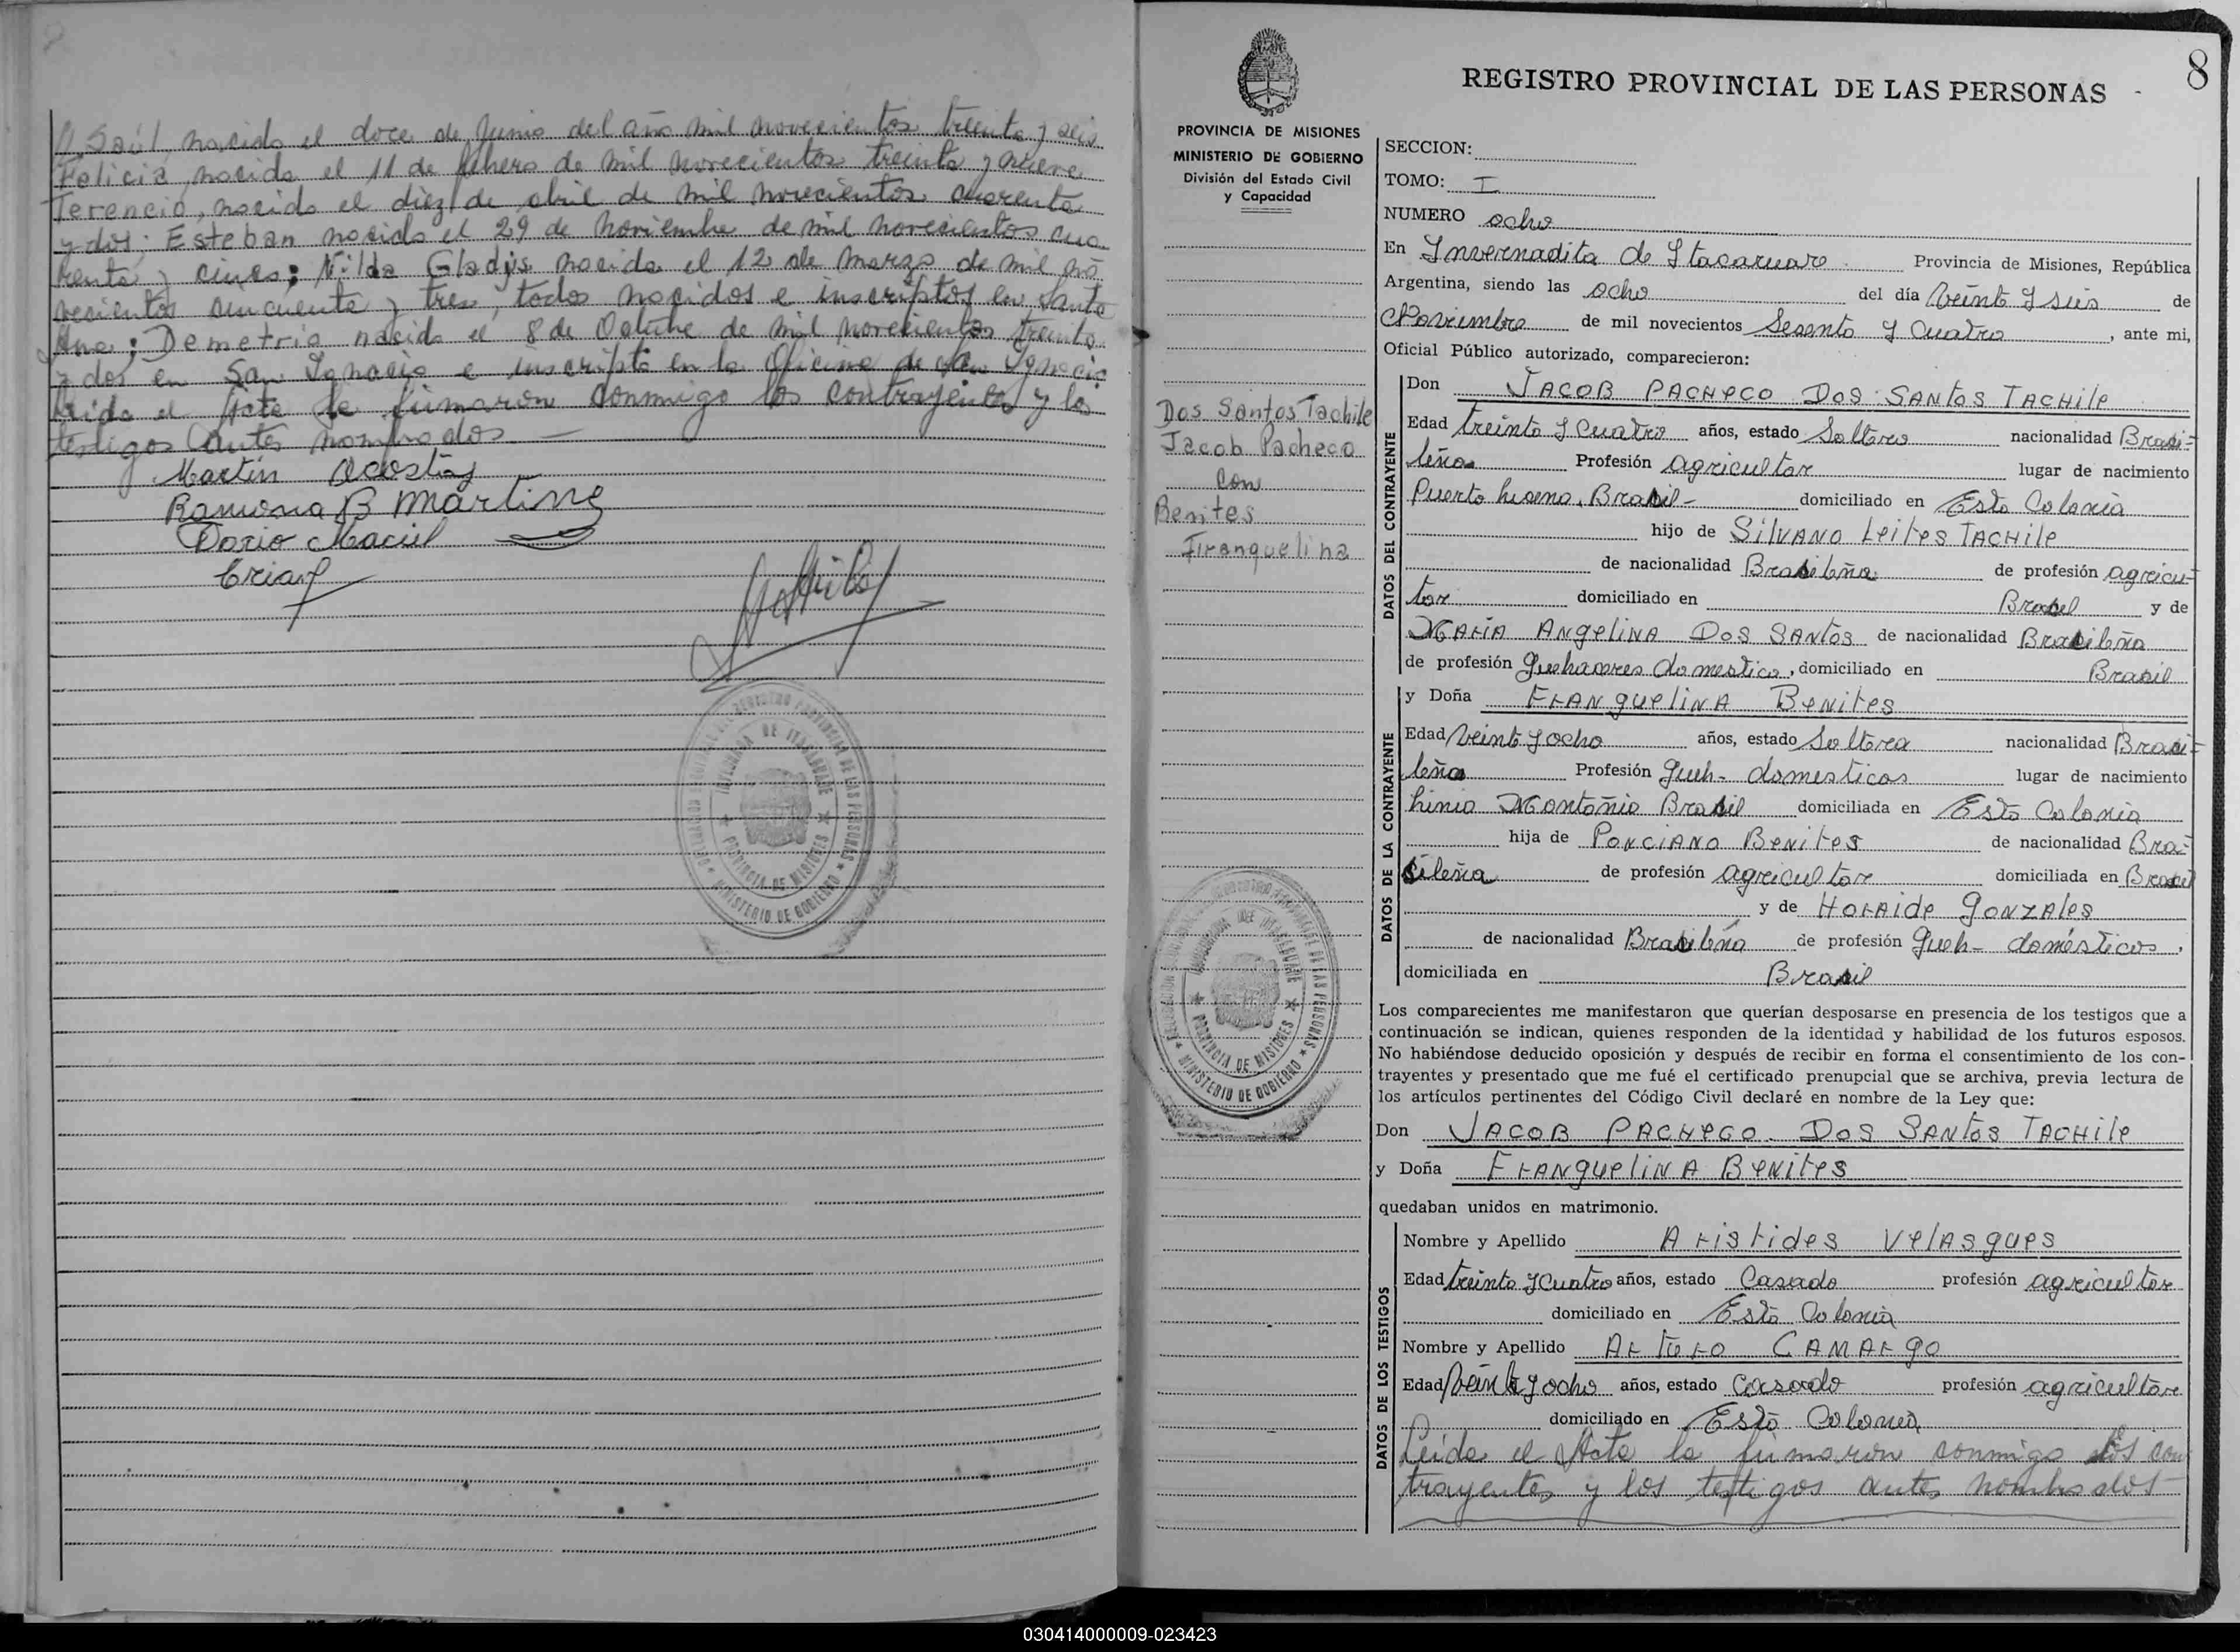 Saúl, nacido el doce de Junio del año mil novecientos treinta y seis
Felicia, nacida el 11 de Enero de mil novecientos treinta y nueve
Terencio, nacido el diez de abril de mil novecientos cuarenta
y dos; Esteban nacido el 29 de Noviembre de mil novecientos cua
renta y cinco; Nilda Gladys nacida el 12 de Marzo de mil no
vecientos cincuenta y tres, todos nacidos e inscriptos en Santa
Ana; Demetrio nacido el 8 de Octubre de mil novecientos treinta
y dos en San Ignacio e inscripto en la Oficina de San Ignacio
Leida el Acta la firmaron conmigo los contrayentes y los
testigos antes nombrados
Martín Acosta
Ramona B Martine
Dario Maciel
REGISTRO PROVINCIAL DE LAS PERSONAS
PROVINCIA DE MISIONES
MINISTERIO DE GOBIERNO
8
REGISTRO PROVINCIAL DE LAS PERSONAS
PROVINCIA DE MISIONES
MINISTERIO DE GOBIERNO
División del Estado Civil
y Capacidad
Dos Santos Tachile
Jacob Pacheco
con
Benites
Franquelina
PROVINCIA DE MISIONES
MINISTERIO DE GOBIERNO
SECCION:
TOMO: I
NUMERO ocho
En Invernadita de Itacaruare Provincia de Misiones, República
Argentina, siendo las ocho del día veint y seis de
Noviembre de mil novecientos Sesenta y Cuatro, ante mi,
Oficial Público autorizado, comparecieron:
DATOS DEL CONTRAYENTE
Don JACOB PACHECO DOS SANTOS TACHILE
Edad treinta y Cuatro años, estado Soltero nacionalidad Brasi-
leña Profesión agricultor lugar de nacimiento
Puerto Lucena, Brasil- domiciliado en Esta Colonia
hijo de SILVANO LEITES TACHILE
de nacionalidad Brasileña de profesión agricul-
tor domiciliado en Brasil y de
MARÍA ANGELINA DOS SANTOS de nacionalidad Brasileña
de profesión Quehaceres domestico, domiciliado en Brasil
DATOS DE LA CONTRAYENTE
y Doña FRANQUELINA BENITES
Edad Veint y ocho años, estado Soltera nacionalidad Brasi-
leña Profesión Queh- domesticos lugar de nacimiento
Brasil domiciliada en Esta Colonia
hija de PONCIANO BENITES de nacionalidad Bra-
sileña de profesión agricultor domiciliada en Brasil
y de HORAIDE GONZALES
de nacionalidad Brasileña de profesión Queh- domésticos,
domiciliada en Brasil
Los comparecientes me manifestaron que querían desposarse en presencia de los testigos que a
continuación se indican, quienes responden de la identidad y habilidad de los futuros esposos.
No habiéndose deducido oposición y después de recibir en forma el consentimiento de los con-
trayentes y presentado que me fué el certificado prenupcial que se archiva, previa lectura de
los artículos pertinentes del Código Civil declaré en nombre de la Ley que:
Don JACOB PACHECO DOS SANTOS TACHILE
y Doña FRANQUELINA BENITES
quedaban unidos en matrimonio.
DATOS DE LOS TESTIGOS
Nombre y Apellido ARISTIDES VELASQUES
Edad treinta y Cuatro años, estado Casado profesión agricultor
domiciliado en Esta Colonia
Nombre y Apellido ARTURO CAMARGO
Edad Veint y ocho años, estado Casado profesión agricultor
domiciliado en Esta Colonia
Leida el Acta la firmaron conmigo los con
trayentes y los testigos antes nombrados
030414000009-023423